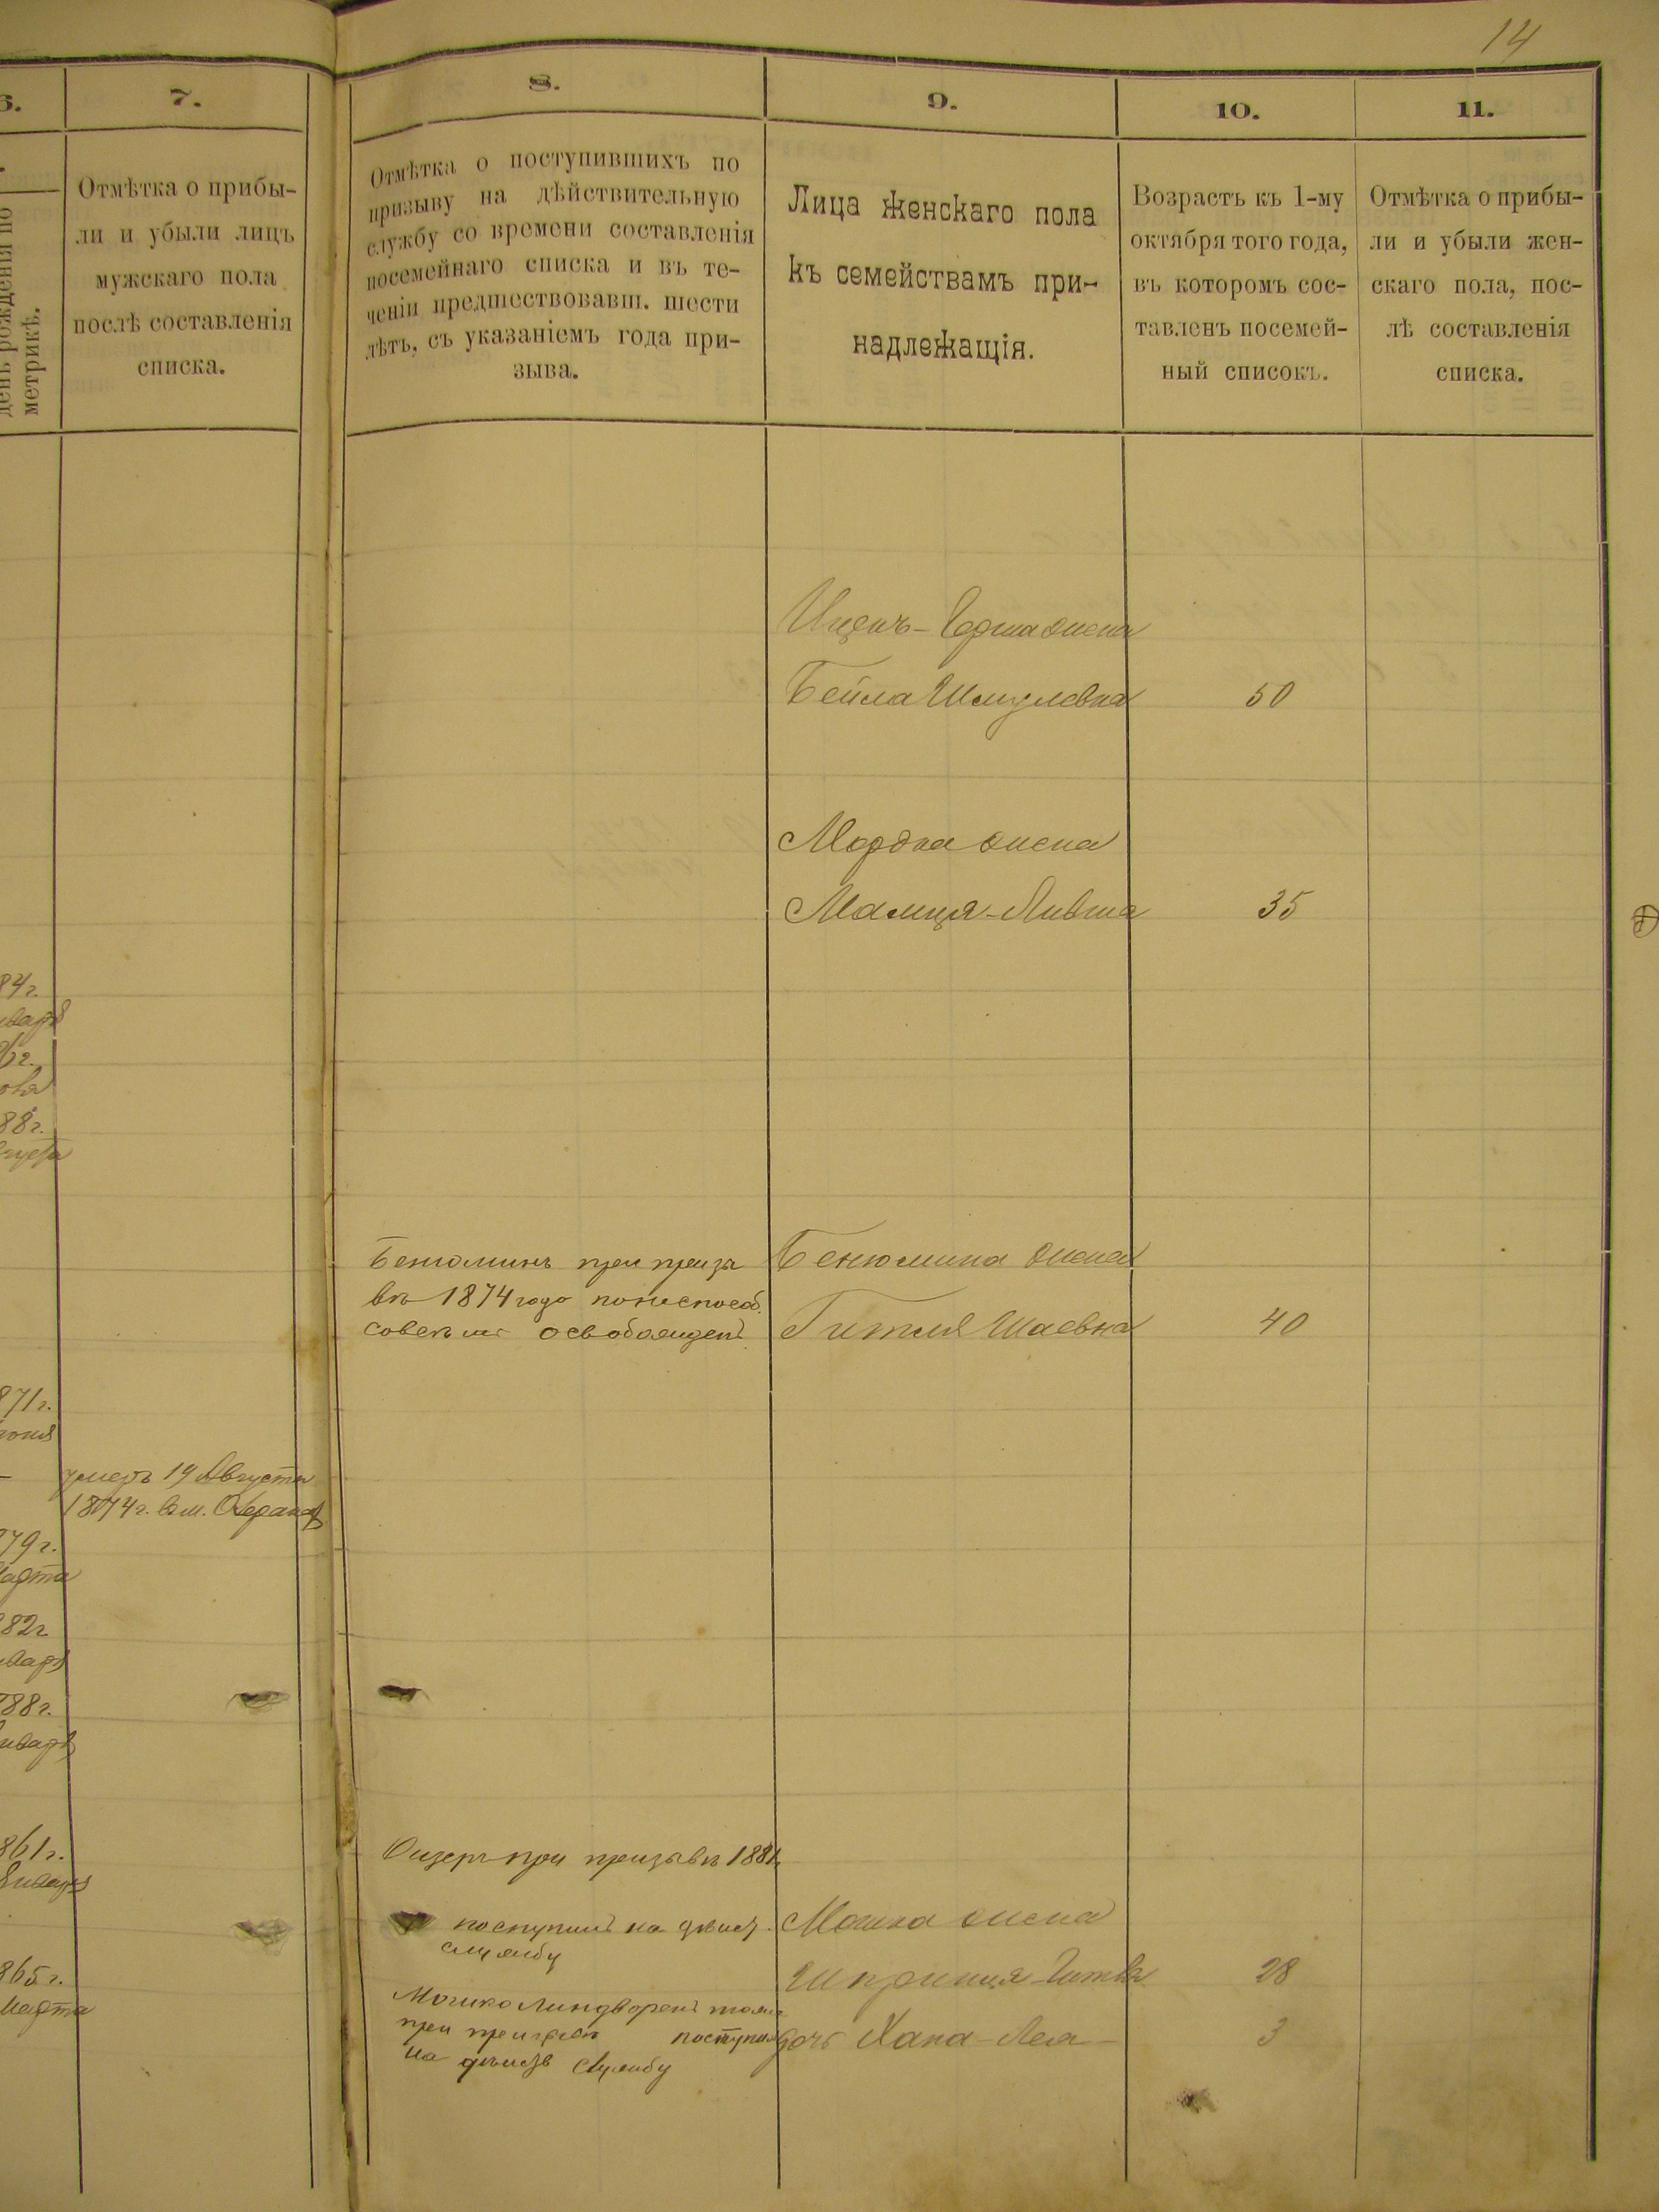 14
6.
7.
8.
9.
10.
11.
день рожденія по
метрикѣ.
Отмѣтка о прибы-
ли и убыли лицъ
мужскаго пола
послѣ составленія
списка.
Отмѣтка о поступившихъ по
призыву на дѣйствительную
службу со времени составленія
посемейнаго списка и въ те-
ченіи предшествовавш. шести
лѣтъ, съ указаніемъ года при-
зыва.
Лица женскаго пола
къ семействамъ при-
надлежащія.
Возрастъ къ 1-му
октября того года,
въ которомъ сос-
тавленъ посемей-
ный списокъ.
Отмѣтка о прибы-
ли и убыли жен-
скаго пола, пос-
лѣ составленія
списка.
Ицекъ-Герша жена
Бейла Шмулевна 50
Мордка жена
Малця-Ливша 35
84г.
88г.
Бенюминъ при призы
вѣ 1874 года по неспособ.
совсѣмъ освобожденъ
Бенюмина жена
Гитля Шаевна 40
871г.
умеръ 19 Августа
1874г. в м.
79г.
Марта
82г
88г.
861г.
Января
865г.
Марта
Ойзеръ при призывѣ 1881
поступилъ на дѣйст.
службу
Мошка жена
Шпринця-Гитля 28
дочь Хана-Лея 3
Мошко тоже
при поступил
на службу